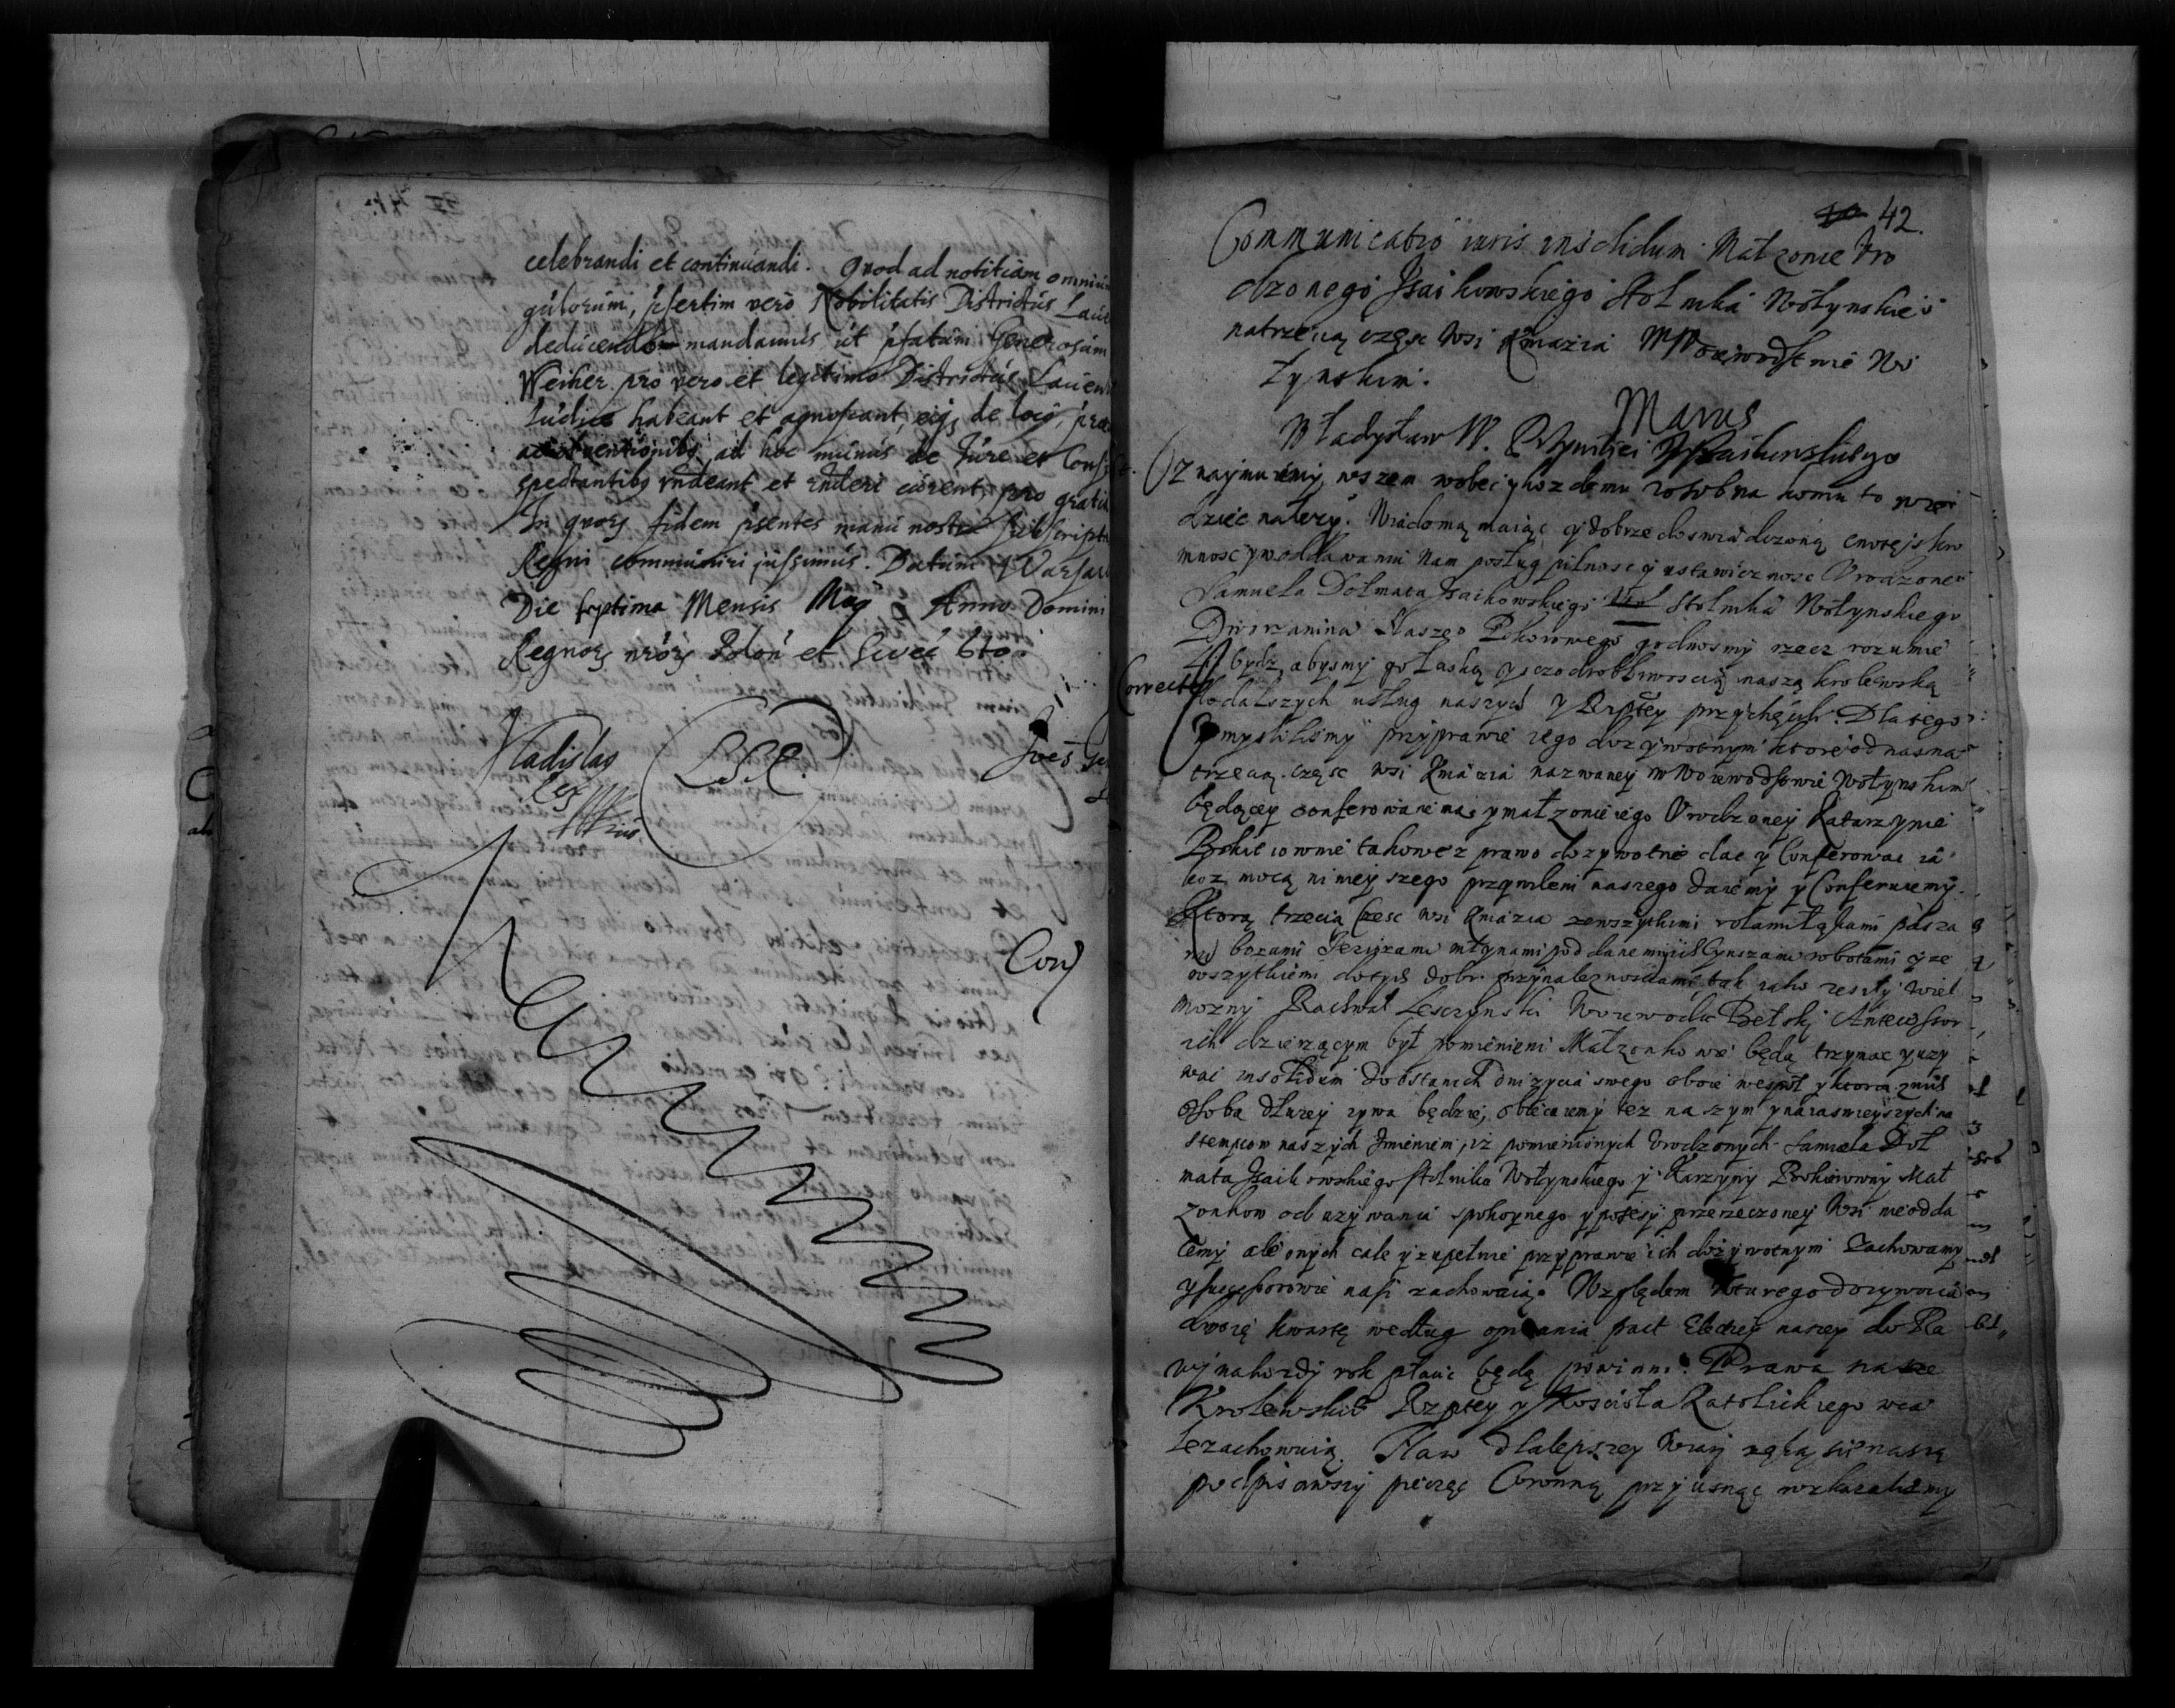 celebrandi et continuandi. Quod ad notitiam omnium
gulorum, psertim vero Nobilitatis Districtus Laue
deducendo mandamus ut pfatum Generosum
Weiher pro vero et legitimo Districtus Lauen
Iudice habeant et agnoscant, eiq de loco, prae
ad hoc munus de Iure et Cons
spectantibq rndeant et rnderi curent, pro gratia
In quorz fidem psentes manu nostra subscript
Regni communiri jussimus. Datum Varsau
Die septima Mensis Maij Anno Domini
Regnorz nrorz Polon et Suec 6to.
Vladislaus
Rex
L.S.R.
42.
Communicatio iuris insolidum Małzonce Vro
dzonego Isaikowskiego Stolnika Wołynskieo
natrzecią częsc wsi Kniazia w Woiewodstwie Wo
łynskim.
Manus
Władysław IV.
Oznaymuiemy wszem wobec y kozdemu zosobna komu to wie
dziec nalezy. Wiadomą maiąc y dobrze doswiadczoną cnotę, skro
mnosc y woddawaniu nam posług pilnosc y ustawicznosc Urodzoneo
Samuela Dołmata Isaikowskiego Stolnika Wołynskiego
Dworzanina Naszego Pokoiowego godnosmy rzecz rozumie
li bydz abysmy go łaską y sczodrobliwoscią naszą krolewską
Correcta
dodalszych usług naszych y Rzptey przychęcili. Dlatego
umyslilismy przyprawie iego dozywotnym ktore od nas na
trzecią częsc wsi Kniazia nazwaney w Woiewodstwie Wołynskim
będącey conferowane ma, y małzonce iego Urodzoney Katarzynie
takowez prawo dozywotne dac y Conferowac ia
koz mocą ninieyszego przywileiu naszego daiemy y Conferuiemy.
Ktorą trzecią częsc wsi Kniazia zewszytkimi rolami łąkami pasza
mi borami Ieziorami młynami poddanemi y ich czynszami robotami y ze
wszytkiemi do tych dobr przynaleznosciami tak iako zeszły Wiel
mozny Rachwał Lesczynski Woiewoda Bełski Antecessor
ich dzierzącym był pomienieni Małzonkowie będą trzymac y uzy
wac insolidum do ostanich dni zycia swego oboie wespoł y ktora znich
osoba dłuzey zywa będzie, obiecuiemy tez naszym y naiasnieyszych na
stempcow naszych Imieniem, iz pomienionych Urodzonych Samuela Doł
mata Isaikowskiego Stolnika Wołynskiego y Małzonkow
od uzywania spokoynego y posesyi przerzeczoney Wsi nie odda
lemy ale onych cale y zupełnie przyprawie ich dozywotnym zachowamy
y successorowie nasi zachowaią. Względem ktorego dozywocia
dwoię kwartę według opisania pact Elekcyi naszey do Ra
wy nakozdy rok płacic będą powinni. Prawa nasze
Krolewskie Rzptey y Kosciola Katolickiego wca
le zachowuią. Na co dla lepszey Wiary ręką się naszą
podpisawszy pieczęc Coronną przycisnąc rozkazalismy